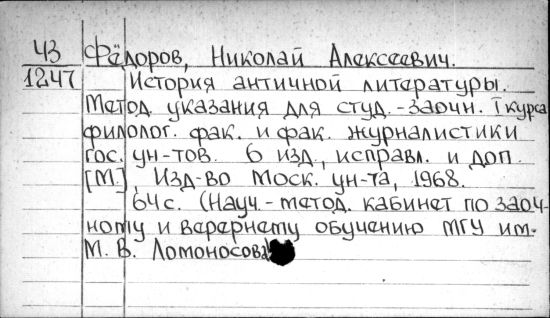 43 Фёдоров, Николай Алексеевич.
1247 История античной литературы.
Метод. указания для студ.-заочн. I курса
филолог. фак. и фак. журналистики
гос. ун-тов. 6 изд., исправл. и доп.
[М.], Изд-во Моск. ун-та, 1968.
64 с. (Науч.-метод. кабинет по заоч-
ному и вечернему обучению МГУ им.
М. В. Ломоносова)